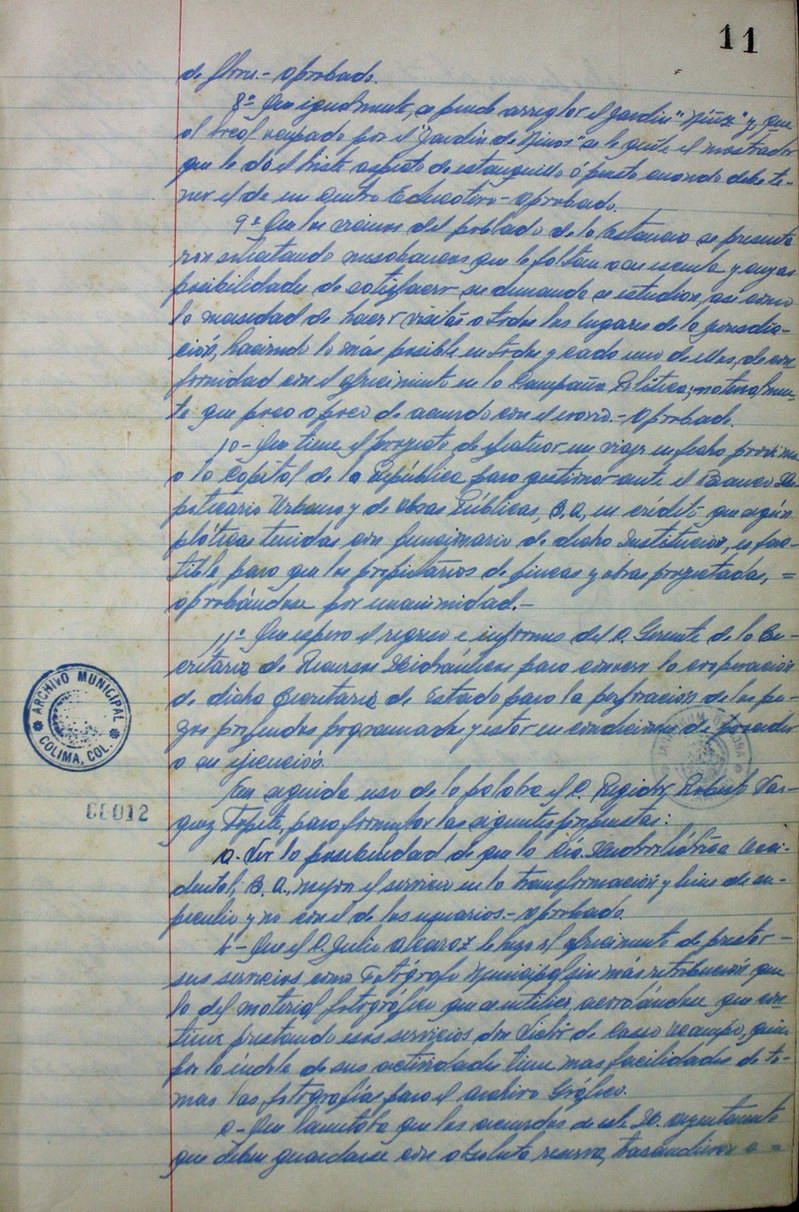 11
de flores.- Aprobado.
8º Que igualmente, se puede arreglar el Jardín "Núñez" y, que
al local ocupado por el "Jardín de Niños" se le quite el mostrador
que le dá el triste aspecto de estanquillo ó puesto cuando debe te-
ner el de un Centro Educativo.- Aprobado.
9º Que los vecinos del poblado de la Estancia se presenta
ron solicitando que le faltan a su escuela y cuyas
posibilidades de satisfacer su demanda se estudian, así como
la necesidad de hacer visitas a todos los lugares de la jurisdic-
ción, haciendo lo más posible en todos y cada uno de ellos, de con
formidad con el ofrecimiento en la Campaña Política; natural men-
te que poco a poco de acuerdo con el erario.- Aprobado.
10- Que tiene el proyecto de efectuar un viaje en fecha próxima
a la Capital de la República para gestionar ante el Banco Hi-
potecario Urbano y de Obras Públicas, S.A, un crédito que según
pláticas tenidas con funcionario de dicha Institución, es fac-
tible para que los propietarios de fincas y obras proyectadas, =
aprobándose por unanimidad.-
11º Que espera el regreso e informes del C. Gerente de la Se-
cretaría de Recursos Hidráulicos para conocer la cooperación
de dicha Secretaría de Estado para la perforación de los po-
zos profundos programados y estar en condiciones de proceder
a su ejecución.
ARCHIVO MUNICIPAL
COLIMA, COL.
00012
En seguida uso de la palabra el C. Regidor Roberto Vas-
quez Topete, para formular las siguientes propuestas:
a.- Ver la posibilidad de que la Cía. Hidroeléctrica Occi-
dental, S. A., mejore el servicio en la transformación y line de su
peculio y no con el de los usuarios.- Aprobado.
b- Que el C. Julio Alcaraz le hizo el ofrecimiento de prestar -
sus servicios como Fotógrafo Municipal sin más retribución que
la del material fotográfico que se utilice, acordándose que con
tinúe prestando esos servicios don de Caso Ocampo, quien
por la índole de sus actividades tiene mas facilidades de to-
mar las fotografías para el Archivo Gráfico.
c- Que lamentaba que los acuerdos de este H. Ayuntamiento
que deben guardarse con absoluta reserva, trascendieran a =